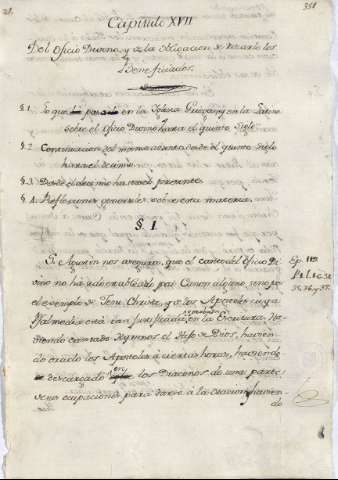 21.
351
Capitulo XVII
Del Oficio Divino, y de la obligacion de rezarlo los
Beneficiados.
§ 1. Lo que pasado en la Iglesia Griega, y en la Latina
sobre el Oficio Divino hasta el quinto siglo.
§ 2. Continuacion del mismo asunto desde el quinto siglo
hasta el decimo.
§ 3. Desde el decimo hasta el presente.
§ 4. Reflexiones generales sobre esta materia.
§ I
S. Agustin nos asegura, que el canto del Oficio Di-
vino no ha sido establecido por Canon alguno, sino por
el exemplo de Jesu Christo, y de los Apostoles cuya
Psalmodia está tan justificada en la Escritura. Ha-
viendo cantado Hymnos el Hijo de Dios, havien-
do orado los Apostoles à ciertas horas, haviendo
descargado los Diaconos de una parte
de sus ocupaciones para darse à la oracion, havien-
do
Ep. 119